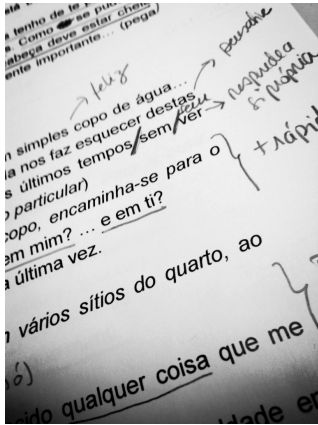 tenho de te
s. Como se pu
abeça deve estar chei
ente importante... (pega)
feliz
pensante
simples copo de água...
a nos faz esquecer destas
s últimos tempos/sem ver
respondea
si própria
particular)
copo, encaminha-se para o
+ rápid
em mim? ... e em ti?
a última vez.
vários sítios do quarto, ao
só)
sido qualquer coisa que me
ldade em